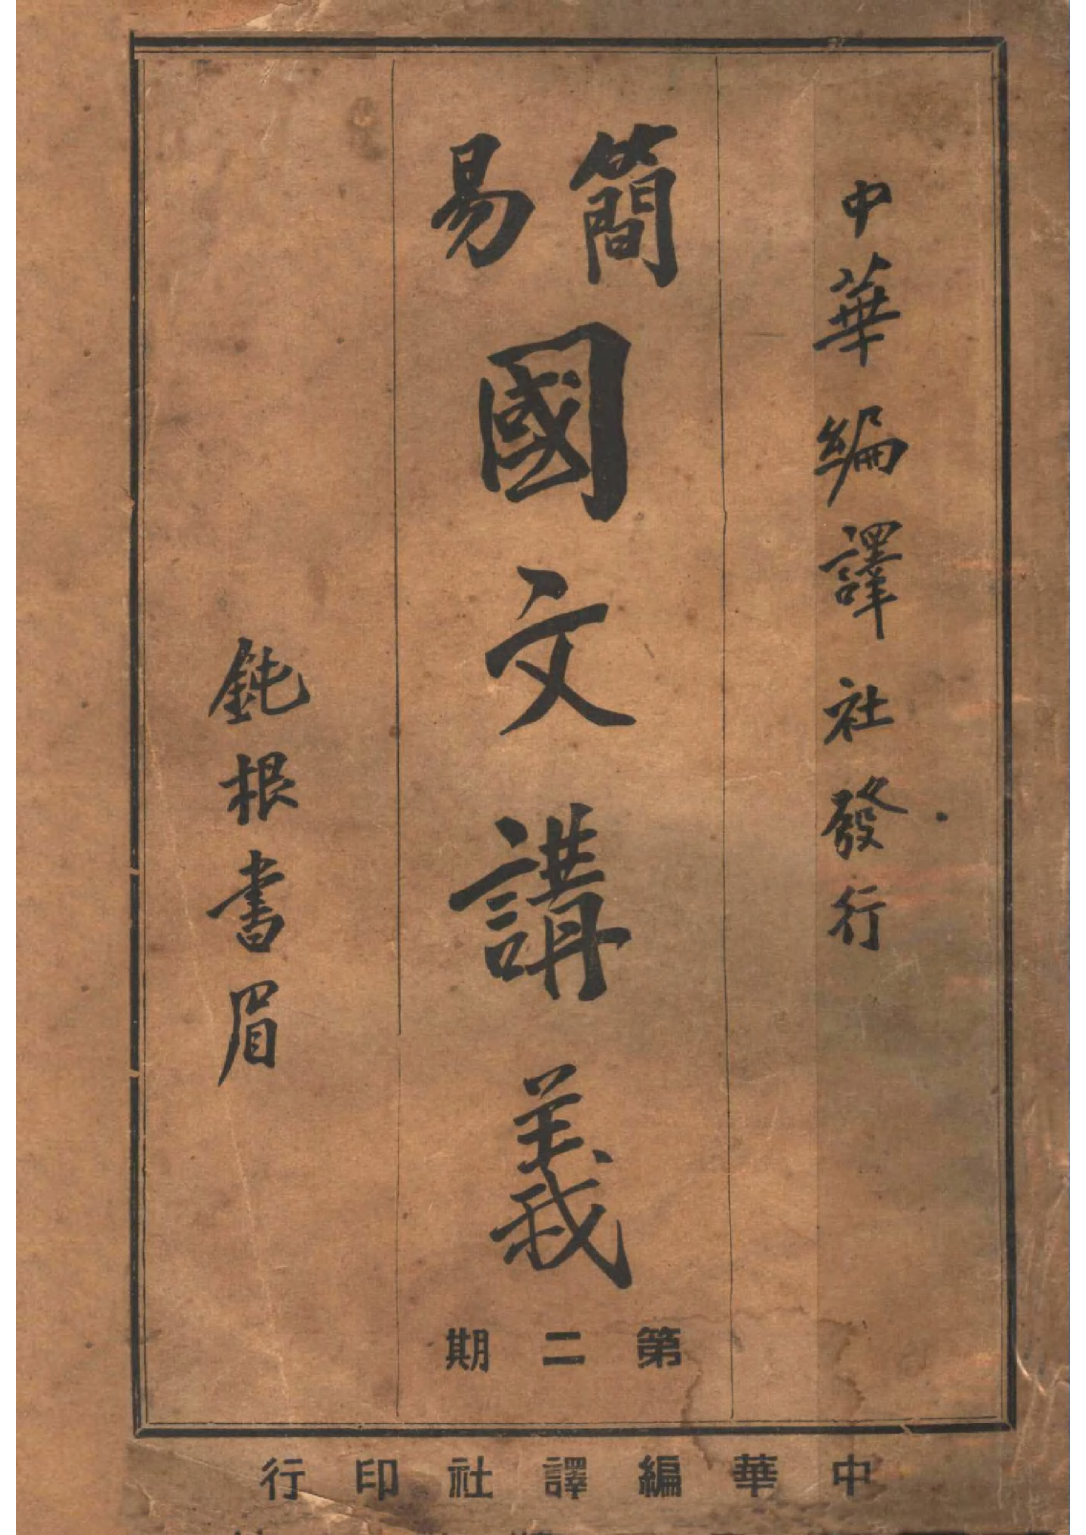 中華編譯社發行
簡易
國文講義
第二期
鈍根書眉
中華編譯社印行